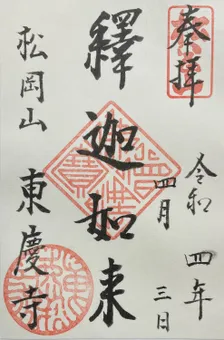 奉拝
令和四年
四月三日
釋迦如来
松岡山
東慶寺